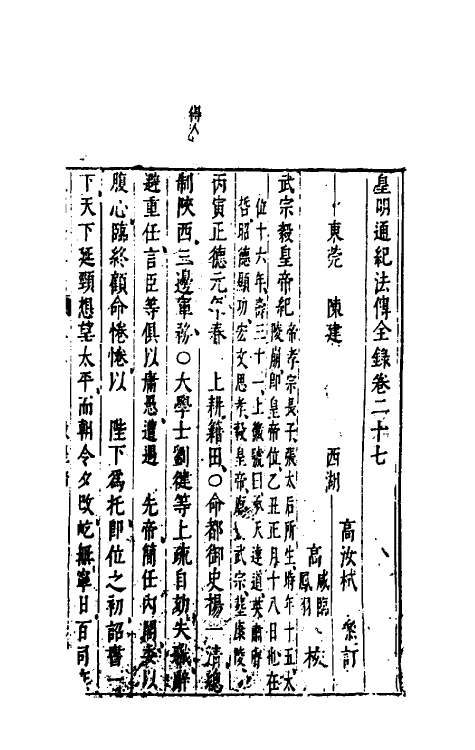 得人
皇明通紀法傳全錄卷二十七
東莞 陳建
西湖 高汝栻 彙訂
高 咸臨 鳳羽 校
武宗毅皇帝紀 帝孝宗長子張太后所生時年十五太
陵崩即皇帝位乙丑正月十八日也在
位十六年壽三十一上徽號曰承天達道英肅睿
哲昭德顯功宏文思孝毅皇帝廟 武宗 葬康陵
丙寅正德元年春 上耕籍田○命都御史楊一清總
制陝西三邊軍務○大學士劉健等上疏自劾失職辭
避重任言臣等俱以庸愚遭遇 先帝簡任內閣委以
腹心臨終顧命惓惓以 陛下為托即位之初詔書一
下天下延頸想望太平而朝令夕改屹無寧日百司